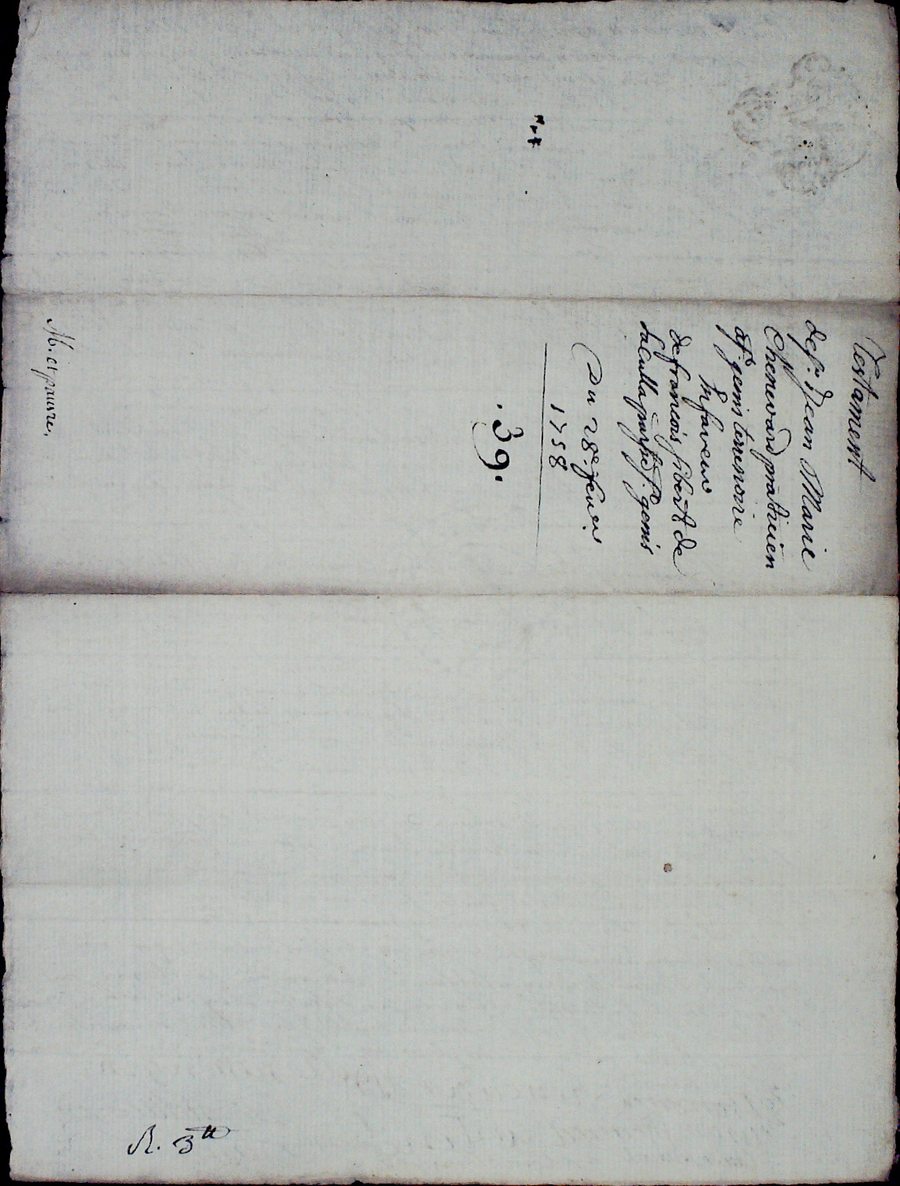 Testament
de sr. Jean Marie
Chenevard praticien
a st. genis terrenoire
En faveur
de francois fibert de
la culla parpe st. genis
Du 28e fevrier
1758
.39.
Ab. et pauvre.
R. 3tt